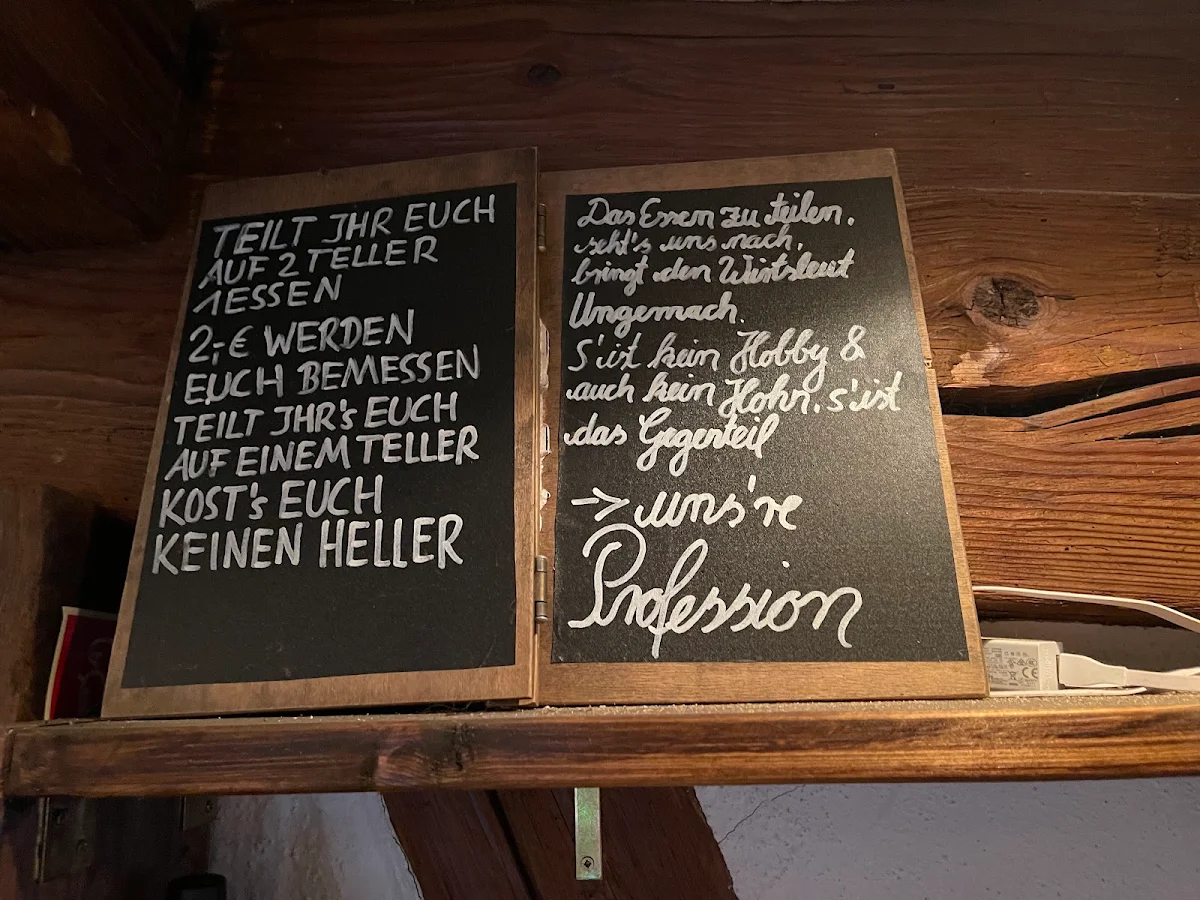 TEILT JHR EUCH
AUF 2 TELLER
1ESSEN
2,-€ WERDEN
EUCH BEMESSEN
TEILT JHR's EUCH
AUF EINEM TELLER
KOST's EUCH
KEINEN HELLER
Das Essen zu teilen,
seht's uns nach,
bringt den Wirtsleut
Ungemach.
S'ist kein Hobby &
auch kein Hohn, s'ist
das Gegenteil
-> uns're
Profession